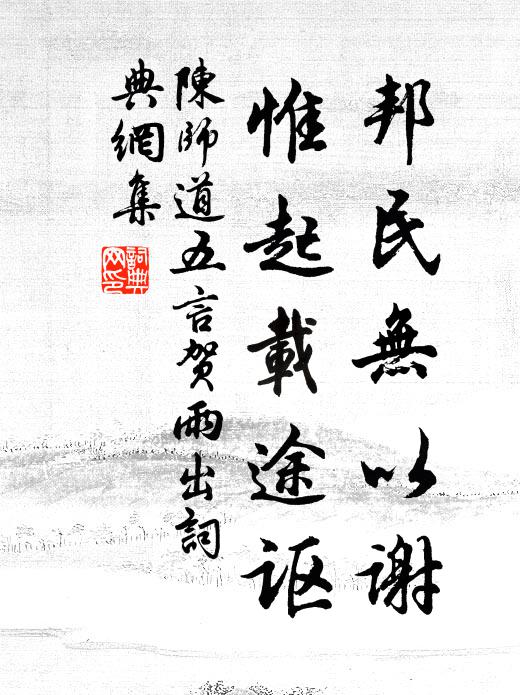 邦民無以謝
惟起載途讴
陳師道五言賀雨出詞
典網集
詞典網印